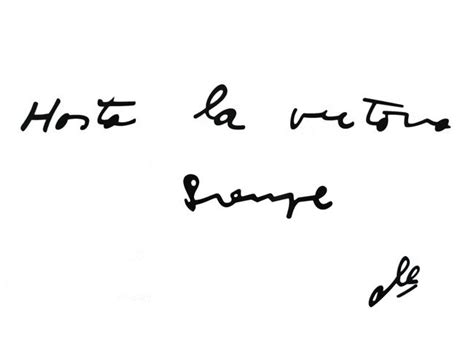 Hasta la victoria
Siempre
Che